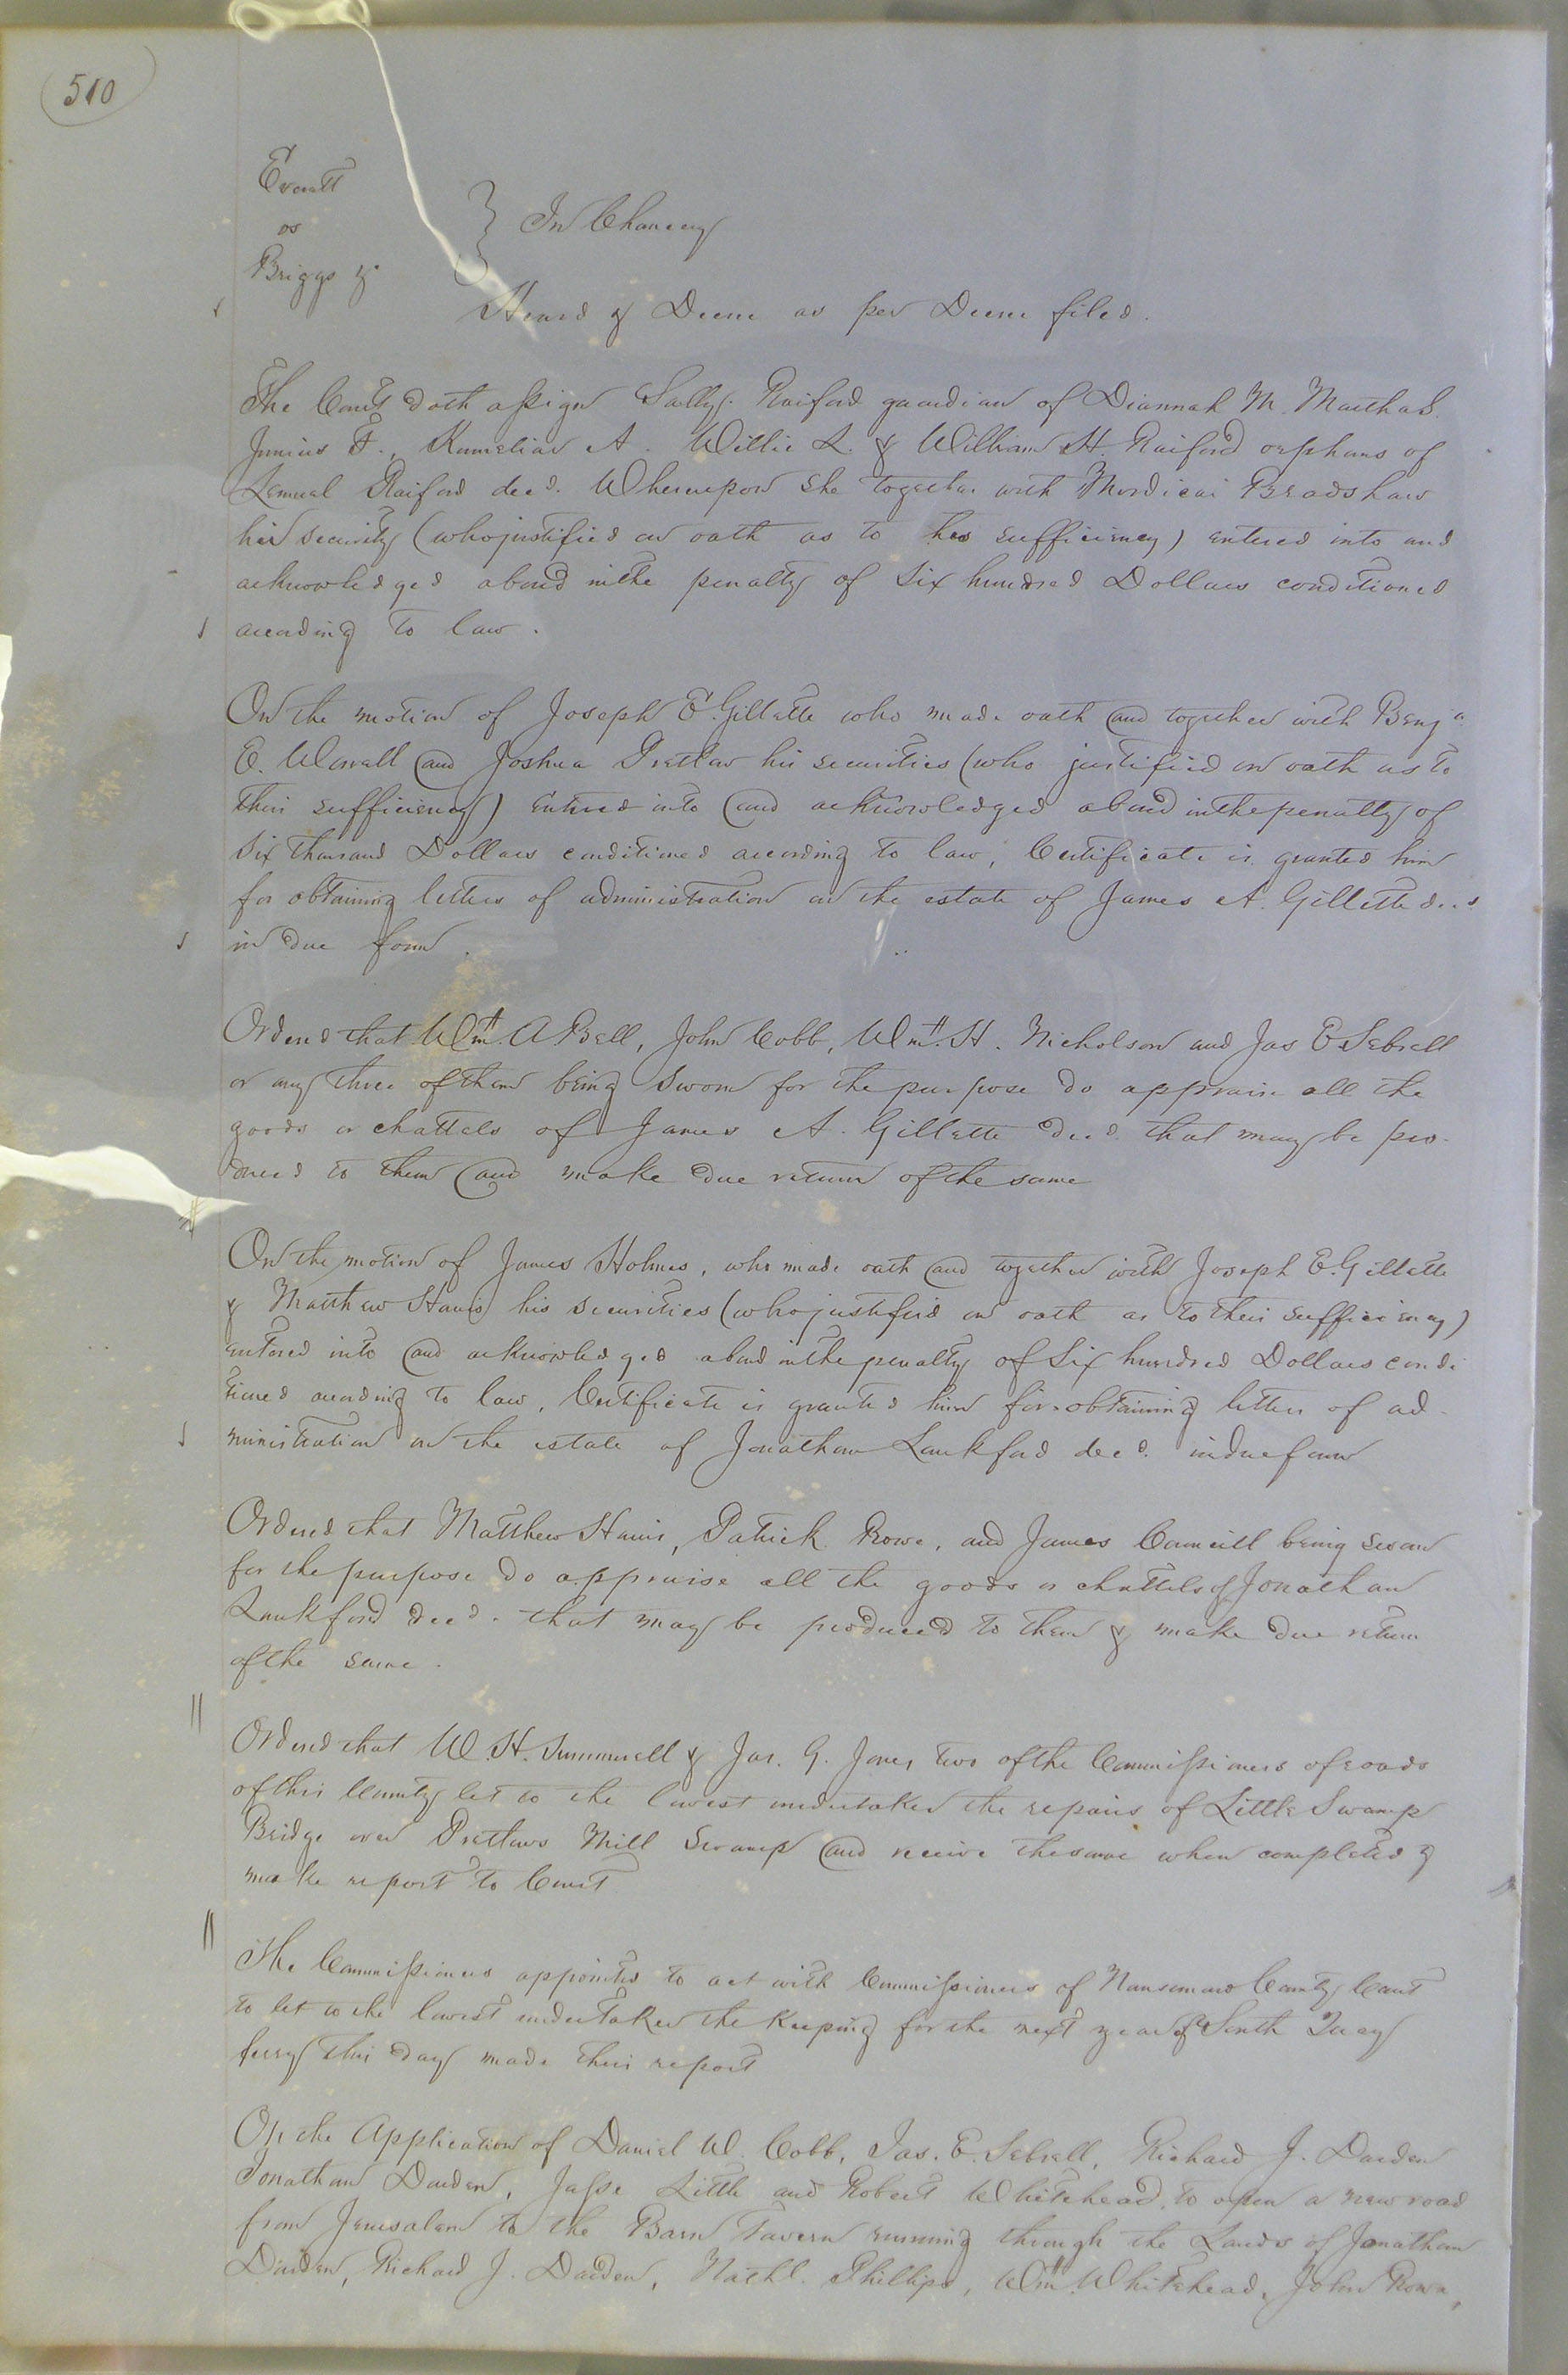 510
Everitt
vs
Briggs &c
} In Chancery
Heard & Decree as per Decree filed.
The Court doth assign Sally Raiford guardian of Diannah M. Martha S.
Junius F., Kumelian A. Willie L. & William H. Raiford orphans of
Lemuel Raiford decd. Whereupon she together with Mordicai Bradshaw
her security (who justified on oath as to his sufficiency) entered into and
acknowledged a bond in the penalty of Six hundred Dollars conditioned
according to law.
On the motion of Joseph E. Gillette who made oath and together with Benja
E. Worrell and Joshua Pretlow his securities (who justified on oath as to
their sufficiency) entered into and acknowledged a bond in the penalty of
Six thousand Dollars conditioned according to law, Certificate is granted him
for obtaining letters of administration on the estate of James A. Gillette decd
in due form.
Ordered that Wm. A Bell, John Cobb, Wm. H. Nicholson and Jas E Sebrell
or any three of them being sworn for the purpose do appraise all the
goods or chattels of James A. Gillette decd. that may be pro-
duced to them and make due return of the same
On the motion of James Holmes, who made oath and together with Joseph E. Gillette
& Matthew Harris his securities (who justified on oath as to their sufficiency)
entered into and acknowledged a bond in the penalty of Six hundred Dollars condi
tioned according to law, Certificate is granted him for obtaining letters of ad-
ministration on the estate of Jonathan Lankford decd. in due form
Ordered that Matthew Harris, Patrick Rowe, and James Councill being sworn
for the purpose do appraise all the goods or chattels of Jonathan
Lankford decd. that may be produced to them & make due return
of the same.
Ordered that W. H. Summerell & Jas. G. Jones two of the Commissioners of roads
of this County let to the lowest undertaker the repairs of Little Swamp
Bridge over Pretlows Mill Swamp and receive the same when completed &
make report to Court
The Commissioners appointed to act with Commissioners of Nansemond County Court
to let to the lowest undertaker the keeping for the next year of South Quay
ferry this day made their report
On the Application of Daniel W. Cobb, Jas. E. Sebrell, Richard J. Darden
Jonathan Darden, Jesse Little and Robert Whitehead, to open a new road
from Jerusalem to the Barn Tavern running through the Lands of Jonathan
Darden, Richard J. Darden, Nathl. Phillips, Wm. Whitehead, John Rowe,